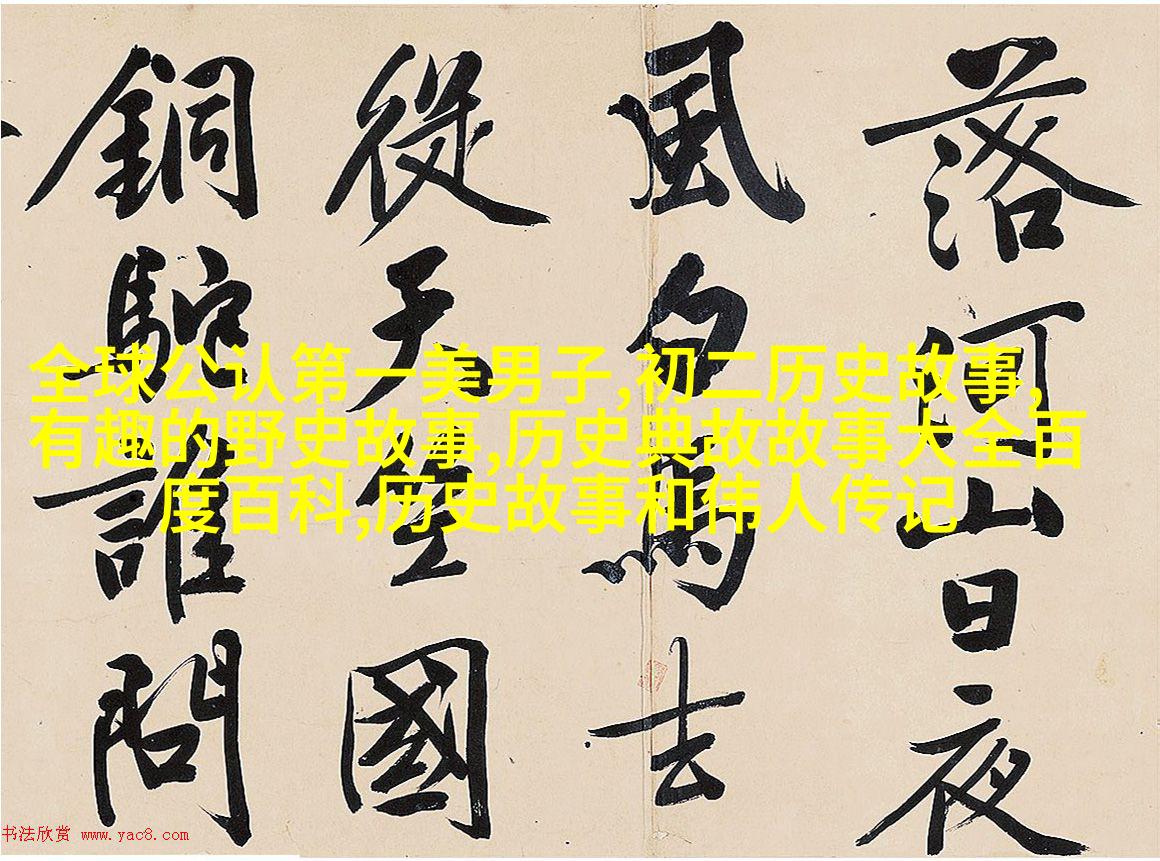 落河山日夜
風白馬去
從天竺國
銅駝誰問
全球公认第一美男子,初二历史故事,
有趣的野史故事,历史典故故事大全百
度百科,历史故事和伟人传记
书法欣赏 www.yac8.com